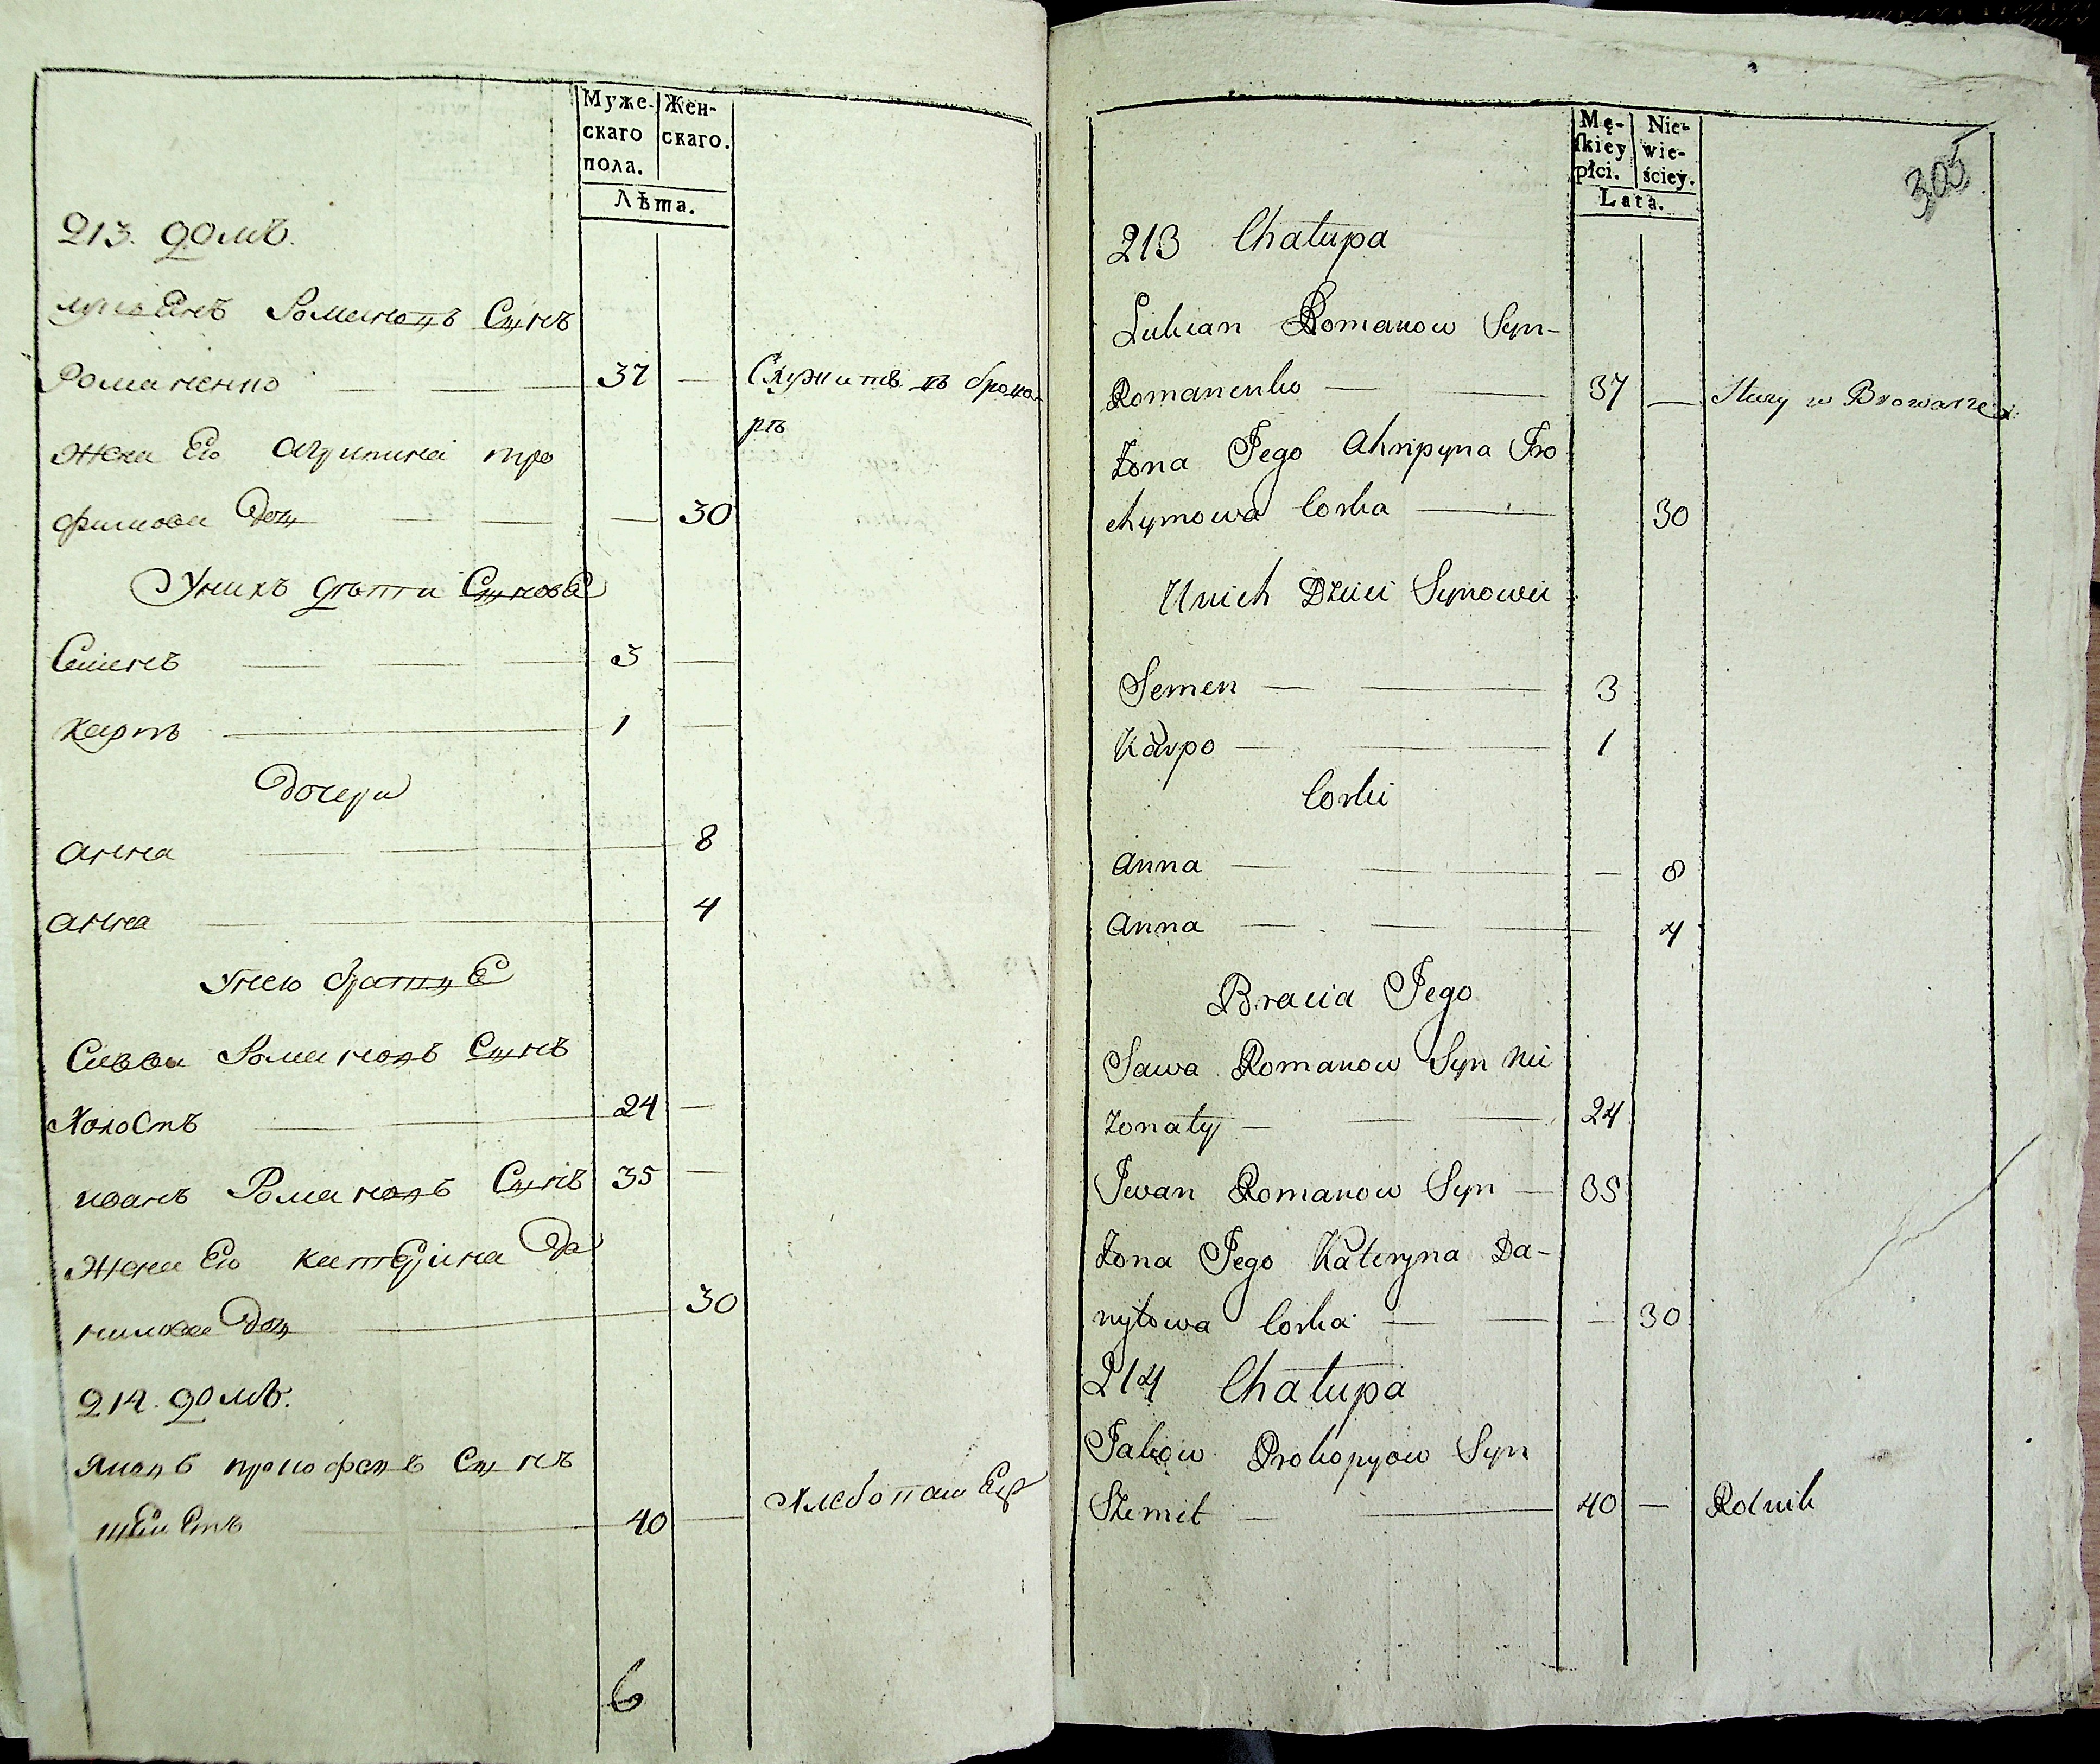 Муже- Жен-
скаго скаго.
пола.
Лѣта.
213. домъ.
лукьянъ Романовъ Сынъ
Романенко — — 37 — Служитъ въ брова-
рѣ
жена Его агрипина тро
фимова Доч — — — 30
Унихъ дѣти Сыновья
Семенъ — — 3 —
карпъ — 1 —
Дочери
анна — — 8
анна — 4
Унего братья
Савва Романовъ Сынъ
Холостъ — 24 —
иванъ Романовъ Сынъ 35 —
жена Его катерина Да
нилова Доч — 30
214. домъ.
яковъ прокофьевъ Сынъ
— 40 — Хлебопашецъ
6
Mę- Nie-
ſkiey wie-
płci. ściey.
Lata.
305
213 Chałupa
Lukian Romanow Syn-
Romanenko — — 37 — Służy w Browarze
Żona Jego Ahripyna Tro
chymowa Corka — 30
Unich Dzieci Synowei
Semen — — 3
Karpo — — 1
Corki
Anna — — — 8
Anna — — 4
Bracia Jego
Sawa Romanow Syn Nie
żonaty — — 24
Iwan Romanow Syn — 35
Żona Jego Kateryna Da-
nyłowa Corka — — — 30
214 Chałupa
Jakow Prokopyow Syn
Szemit — — 40 — Rolnik